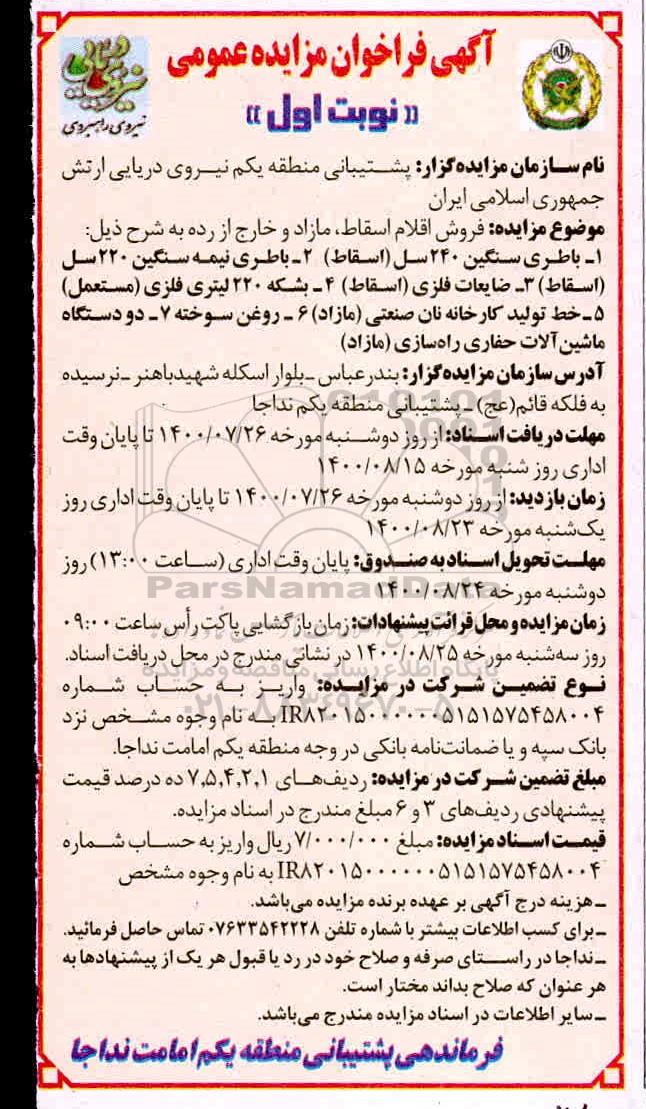 آگهی فراخوان مزایده عمومی
«نوبت اول»
نیروی راهبردی
نام سازمان مزایده‌گزار: پشتیبانی منطقه یکم نیروی دریایی ارتش
جمهوری اسلامی ایران
موضوع مزایده: فروش اقلام اسقاط، مازاد و خارج از رده به شرح ذیل:
۱ـ باطری سنگین ۲۴۰ سل (اسقاط) ۲ـ باطری نیمه سنگین ۲۲۰ سل
(اسقاط) ۳ـ ضایعات فلزی (اسقاط) ۴ـ بشکه ۲۲۰ لیتری فلزی (مستعمل)
۵ـ خط تولید کارخانه نان صنعتی (مازاد) ۶ـ روغن سوخته ۷ـ دو دستگاه
ماشین‌آلات حفاری راه‌سازی (مازاد)
آدرس سازمان مزایده‌گزار: بندرعباس ـ بلوار اسکله شهیدباهنر ـ نرسیده
به فلکه قائم(عج) ـ پشتیبانی منطقه یکم نداجا
مهلت دریافت اسناد: از روز دوشنبه مورخه ۱۴۰۰/۰۷/۲۶ تا پایان وقت
اداری روز شنبه مورخه ۱۴۰۰/۰۸/۱۵
زمان بازدید: از روز دوشنبه مورخه ۱۴۰۰/۰۷/۲۶ تا پایان وقت اداری روز
یک‌شنبه مورخه ۱۴۰۰/۰۸/۲۳
مهلت تحویل اسناد به صندوق: پایان وقت اداری (ساعت ۱۳:۰۰) روز
دوشنبه مورخه ۱۴۰۰/۰۸/۲۴
ParsNamadData
زمان مزایده و محل قرائت پیشنهادات: زمان بازگشایی پاکت رأس ساعت ۰۹:۰۰
روز سه‌شنبه مورخه ۱۴۰۰/۰۸/۲۵ در نشانی مندرج در محل دریافت اسناد.
پایگاه اطلاع رسانی مناقصه و مزایده
نوع تضمین شرکت در مزایده: واریز به حساب شماره
۰۲۱-۸۸۳۴۹۶۷۰-۵
IR۸۲۰۱۵۰۰۰۰۰۰۵۱۵۱۵۷۵۴۵۸۰۰۴ به نام وجوه مشخص نزد
بانک سپه و یا ضمانت‌نامه بانکی در وجه منطقه یکم امامت نداجا.
مبلغ تضمین شرکت در مزایده: ردیف‌های ۷,۵,۴,۲,۱ ده درصد قیمت
پیشنهادی ردیف‌های ۳ و ۶ مبلغ مندرج در اسناد مزایده.
قیمت اسناد مزایده: مبلغ ۷/۰۰۰/۰۰۰ ریال واریز به حساب شماره
IR۸۲۰۱۵۰۰۰۰۰۰۵۱۵۱۵۷۵۴۵۸۰۰۴ به نام وجوه مشخص
ـ هزینه درج آگهی بر عهده برنده مزایده می‌باشد.
ـ برای کسب اطلاعات بیشتر با شماره تلفن ۰۷۶۳۳۵۴۲۲۲۸ تماس حاصل فرمائید.
ـ نداجا در راستای صرفه و صلاح خود در رد یا قبول هر یک از پیشنهادها به
هر عنوان که صلاح بداند مختار است.
ـ سایر اطلاعات در اسناد مزایده مندرج می‌باشد.
فرماندهی پشتیبانی منطقه یکم امامت نداجا